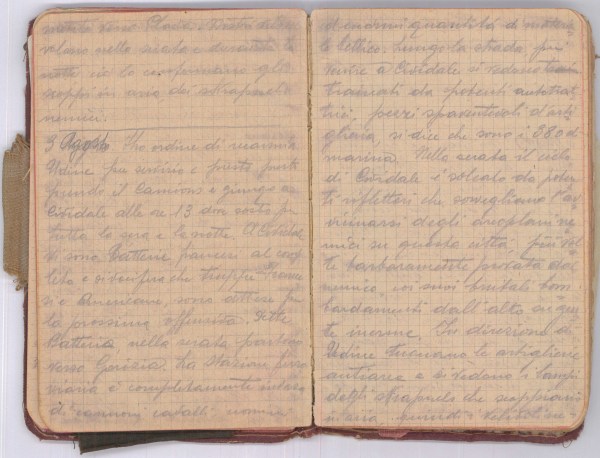 nella serata e durante la
notte ce lo confermano gli
scoppi in aria dei shrapnels
nemici.
3 Agosto. Ho ordine di recarmi a
Udine per servizio e presto
prendo il Camions e giungo a
Cividale alle ore 13 dove sosto per
tutta la sera e la notte. A Cividale
vi sono Batterie francesi al com
pleto e si dice che truppe Frances
si e Americane, sono attese per
la prossima offensiva. Dette
Batterie nella serata partono
verso Gorizia. La stazione ferro
viaria è completamente
di cannoni cavalli uomini
ed enormi quantità di materia
le bellico. Lungo la strada per
venire a Cividale si vedono
trainati da potenti autotrat
trici, pezzi spaventevoli d'arti
glieria, si dice che sono i 380 di
marina. Nella serata il cielo
di Cividale è solcato da poten
ti riflettori che sorvegliano l'av
vicinarsi degli aeroplani ne
mici su questa città, più vol
te barbaramente provata dal
nemico coi suoi brutali bom
bardamenti dall'alto su gen
te inerme. In direzione di
Udine tuonano le artiglierie
antiaeree e si vedono i lampi
degli shrapnels che scoppiano
in aria quindi